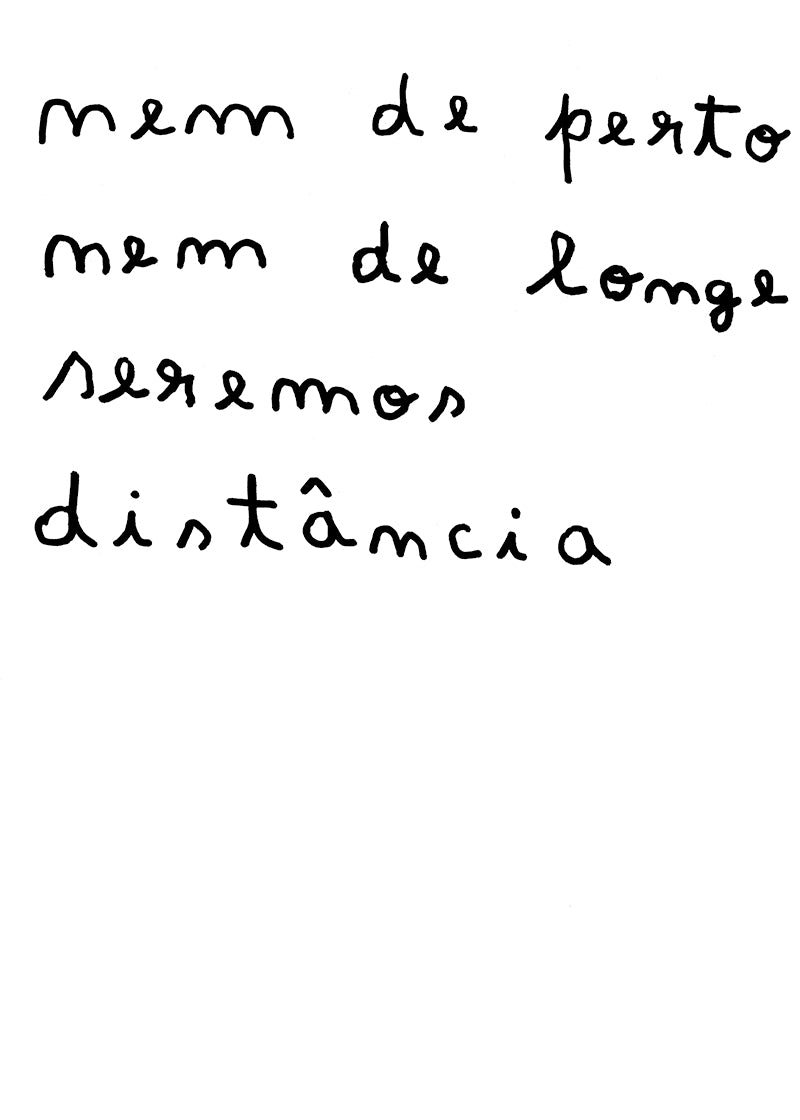 nem de perto
nem de longe
seremos
distância